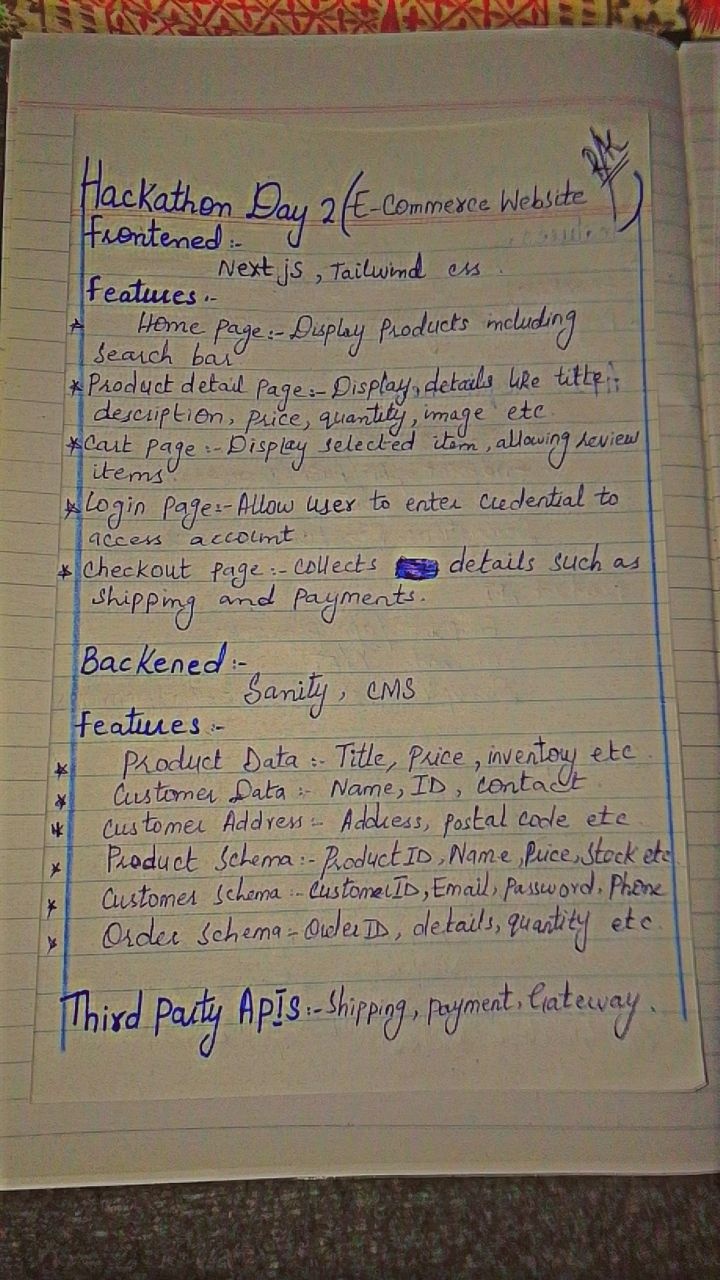 Hackathon Day 2 (E-Commerce Website)
Frontened :-
Next js , Tailwind css .
Features :-
* Home Page :- Display Products including
Search bar
* Product detail Page :- Display, details like title,
description, price, quantity, image etc.
* Cart Page :- Display selected item, allowing review
items.
* Login Page :- Allow user to enter credential to
access account.
* Checkout Page :- Collects details such as
Shipping and Payments.
Backened :-
Sanity, CMS
Features :-
* Product Data :- Title, Price, inventory etc.
* Customer Data :- Name, ID, contact
* Customer Address :- Address, postal code etc.
* Product Schema :- Product ID, Name, Price, Stock etc
* Customer Schema :- Customer ID, Email, Password, Phone
* Order Schema - Order ID, details, quantity etc.
Third Party APIs :- Shipping, Payment, Gateway.